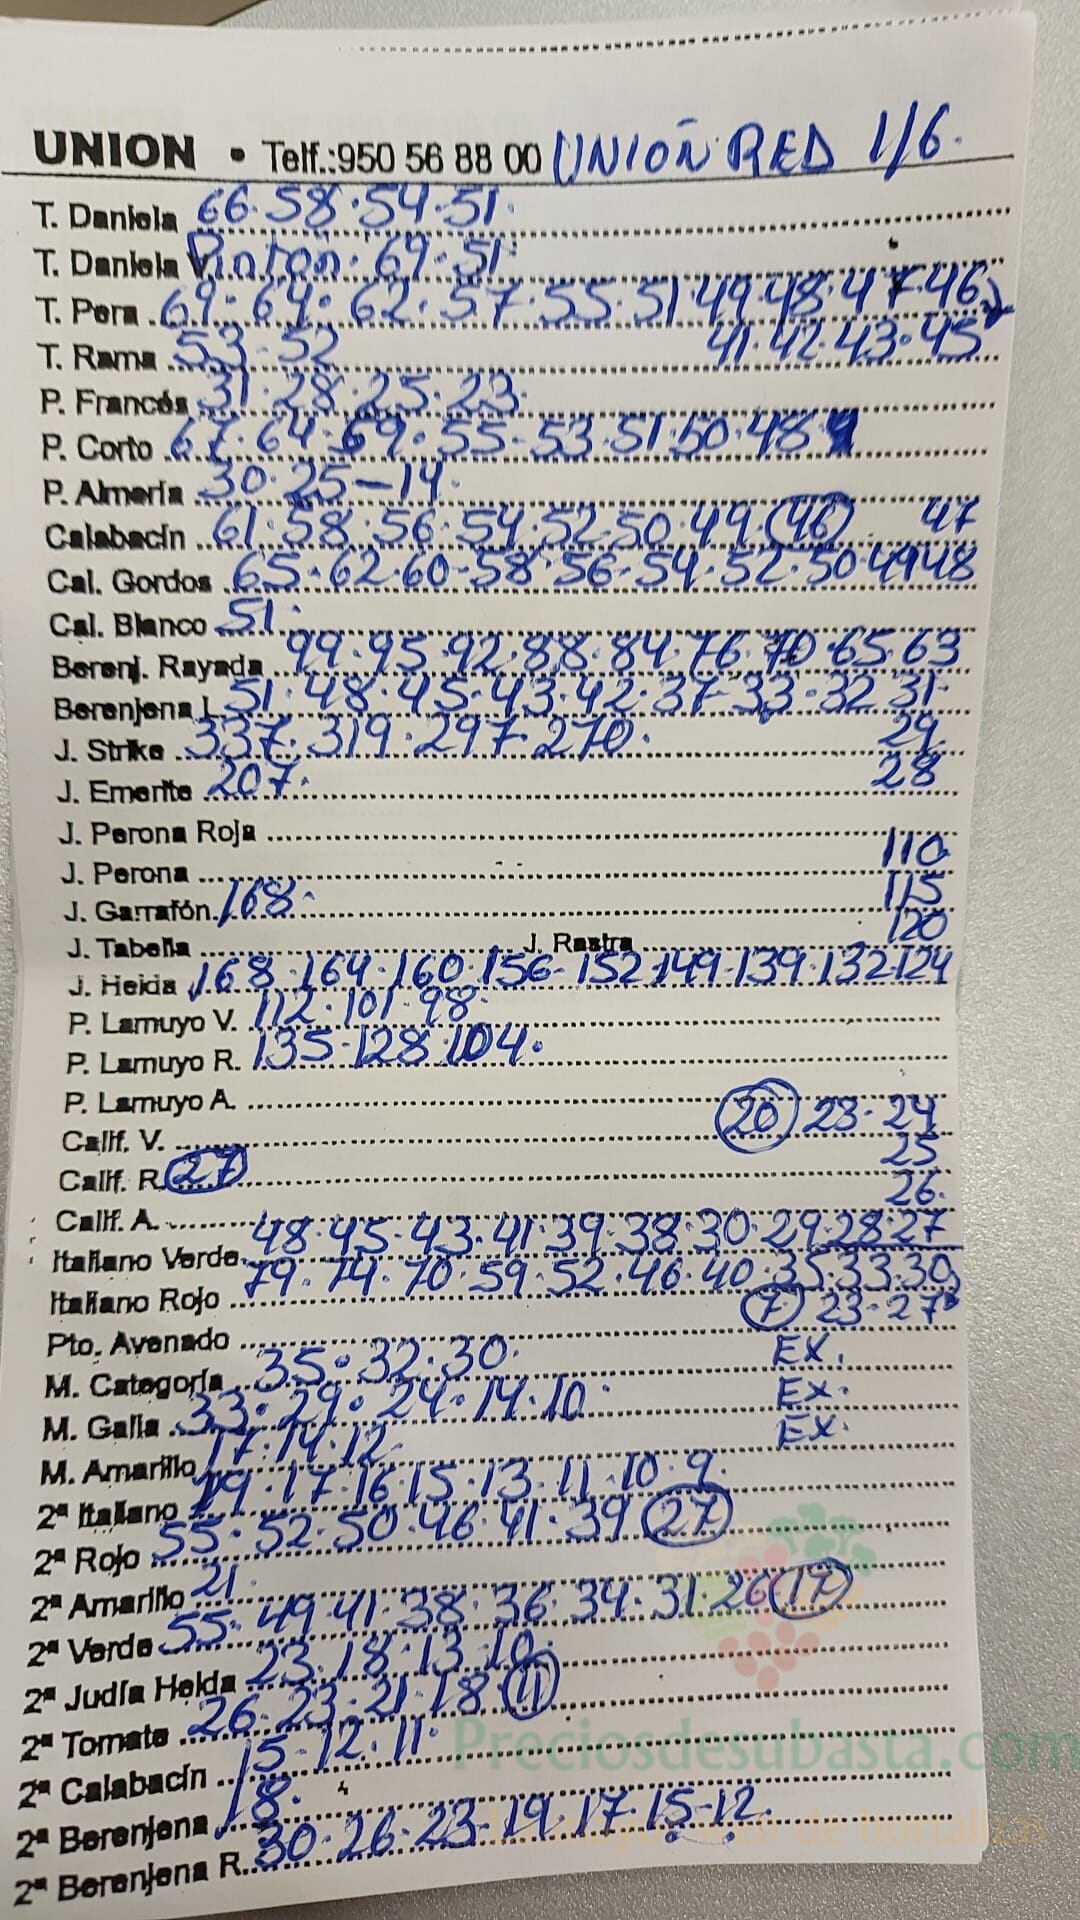 UNION • Telf.:950 56 88 00 UNION RED 1/6.
T. Daniela 66·58·54·51·
T. Daniela V. Pinton· 69·51·
T. Pera 69·64·62·57·55·51·49·48·47·46
T. Rama 53·52 41·42·43·45
P. Francés 31·28·25·23·
P. Corto 67·64·59·55-53·51·50·48
P. Almería 30·25-14·
Calabacín 61·58·56·54·52·50·49 (46) 47
Cal. Gordos 65·62·60-58·56·54·52·50·49 48
Cal. Blanco 51·
Berenj. Rayada 99·95·92·88·84·76·70·65·63
Berenjena L 51·48·45·43·42·37·33·32 31·
J. Strike 337·319·297·270· 29
J. Emerite 207· 28
J. Perona Roja
J. Perona 110
J. Garrafón 168· 115
J. Tabella J. Rastra 120
J. Helda 168·164·160·156-152·149·139·132·124
P. Lamuyo V. 112·101·98·
P. Lamuyo R. 135·128·104·
P. Lamuyo A.
Calif. V. (20) 23·24
Calif. R. (27) 25
Calif. A. 26·
Italiano Verde 48·45·43·41·39·38·30·29·28·27
Italiano Rojo 79·74·70·59·52·46·40·35·33·30
Pto. Avenado (7) 23·27
M. Categoría 35·32·30· EX.
M. Galia 33·29·24·14·10· EX.
M. Amarillo 17·14·12 EX.
2ª Italiano 19·17·16·15·13·11·10·9·
2ª Rojo 55·52·50·46·41·39 (27)
2ª Amarillo 21·
2ª Verde 55·49·41·38·36·34·31·26 (17)
2ª Judía Helda 23·18·13·10·
2ª Tomate 26·23·21·18 (11)
2ª Calabacín 15·12·11·
2ª Berenjena 18·
2ª Berenjena R. 30·26·23-19·17·15-12·
Preciosdesubasta.com
de hortalizas